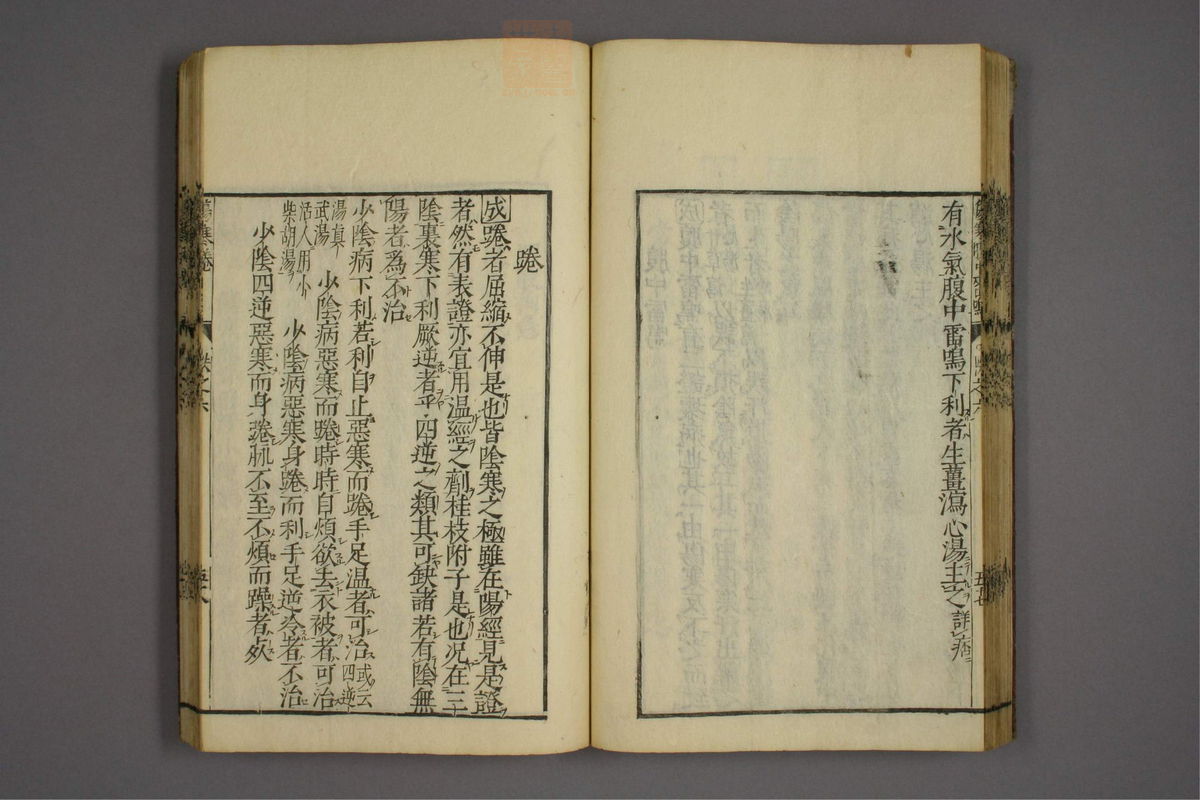 有水氣腹中雷鳴下利者生薑瀉心湯主之
踡
成踡者屈縮不伸是也皆陰寒之極雖在陽經見是證
者然有表證亦宜用温經之劑桂枝附子是也况在三
陰裏寒下利厥逆者乎四逆之類其可缺諸若有陰無
陽者爲不治
少陰病下利若利自止惡寒而踡手足温者可治武云四逆
湯真
武湯 少陰病惡寒而踡時時自煩欲去衣被者可治
活人用小
柴胡湯 少陰病惡寒身踡而利手足逆冷者不治
少陰四逆惡寒而身踡脉不至不煩而躁者死